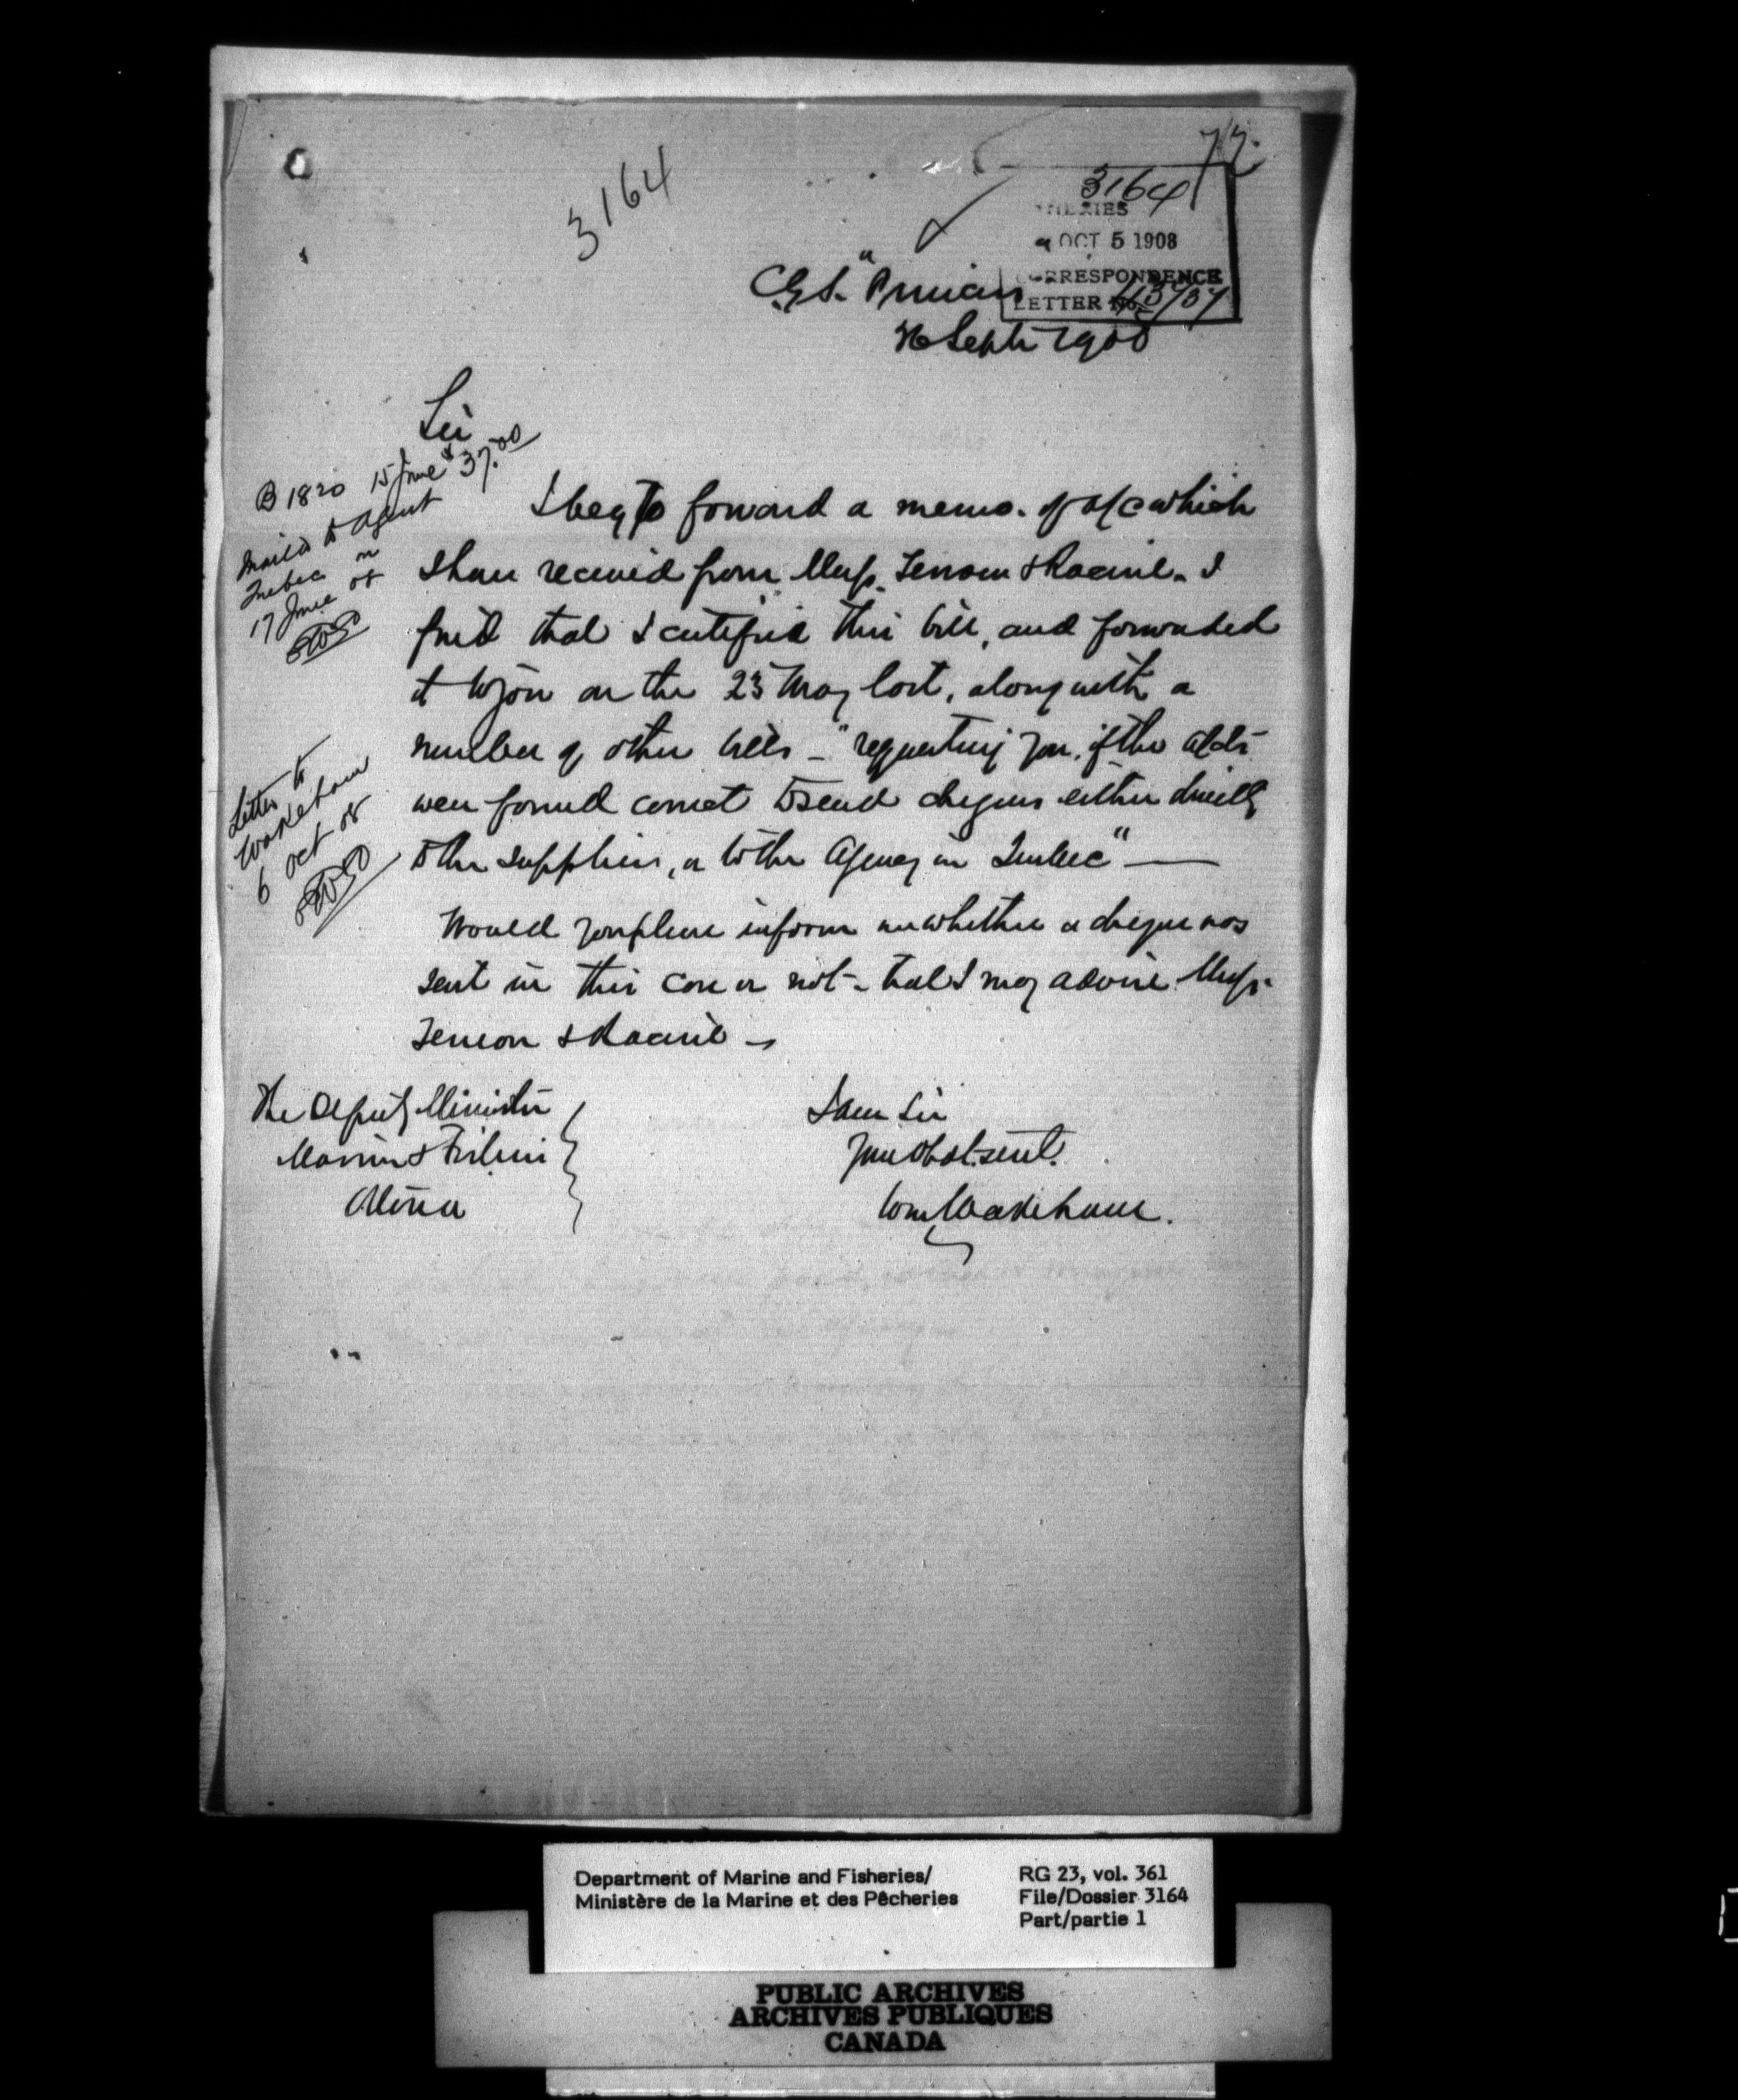 77.
3164
3164
OCT 5 1908
CORRESPONDENCE
LETTER No.
C.G.S. "Princess
26 Septr 1908
Sir
B 1820 15 June $37.00
mailed to Agent
Quebec on
17 June 08
I beg to forward a memo. of a/c which
I have received from Messrs. Terreau & Racine. I
find that I certified this bill, and forwarded
it to you on the 23 May last, along with a
number of other bills - "requesting you, if the a/cts
were found correct to send cheques either directly
to the suppliers, or to the Agency in Quebec" —
Letter to
Wakeham
6 Oct 08
Would you please inform me whether a cheque was
sent in this case or not - that I may advise Messrs.
Terreau & Racine -
The Deputy Minister
Marine & Fisheries
Ottawa
I am Sir
Your Obdt. servt.
Wm Wakeham.
Department of Marine and Fisheries/
Ministère de la Marine et des Pêcheries
RG 23, vol. 361
File/Dossier 3164
Part/partie 1
PUBLIC ARCHIVES
ARCHIVES PUBLIQUES
CANADA